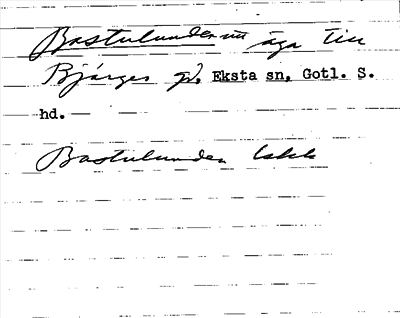 Bastulunden äga till
Bjärges gd. Eksta sn, Gotl. S.
hd.
Bastulunden